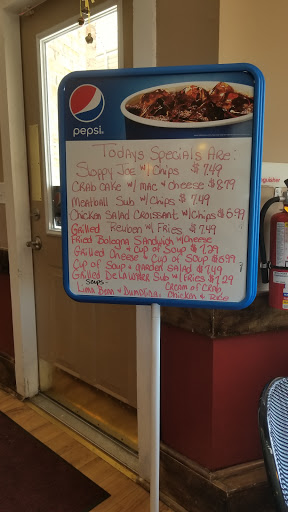 pepsi.
Todays Specials Are:
Sloppy Joe w/ Chips $7.49
Crab Cake w/ mac + Cheese $8.79
Meatball Sub w/ Chips $7.49
Chicken Salad Croissant w/ Chips $6.99
Grilled Reuben w/ Fries $7.49
Fried Bologna Sandwich w/ Cheese
+ Cup of Soup $7.29
Grilled Cheese + Cup of Soup $6.99
Cup of Soup + Garden Salad $7.49
Grilled Delaware Sub w/ Fries $7.29
Soups- Cream of Crab
Lima Bean + Dumpling Chicken +